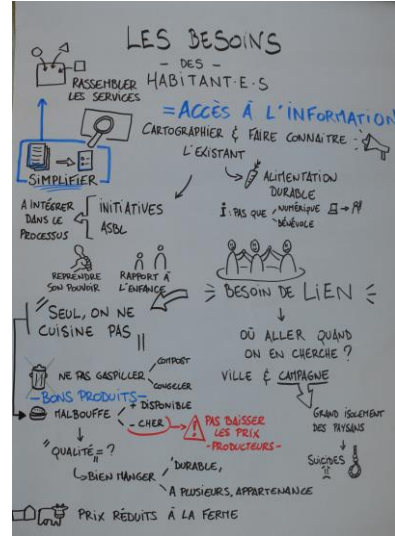 LES BESOINS
- DES -
HABITANT·E·S
RASSEMBLER
LES SERVICES
= ACCÈS À L'INFORMATION
CARTOGRAPHIER & FAIRE CONNAÎTRE
L'EXISTANT
SIMPLIFIER
ALIMENTATION
DURABLE
i: PAS QUE
NUMÉRIQUE
BÉNÉVOLE
A INTÉGRER
DANS LE
PROCESSUS
INITIATIVES
ASBL
REPRENDRE
SON POUVOIR
RAPPORT À
L'ENFANCE
BESOIN DE LIEN
"SEUL, ON NE
CUISINE PAS"
OÙ ALLER QUAND
ON EN CHERCHE ?
VILLE & CAMPAGNE
NE PAS GASPILLER
COMPOST
CONGELER
- BONS PRODUITS -
MALBOUFFE
+ DISPONIBLE
- CHER
! PAS BAISSER
LES PRIX
- PRODUCTEURS -
GRAND ISOLEMENT
DES PAYSANS
SUICIDES
"QUALITÉ" = ?
BIEN MANGER
DURABLE,
A PLUSIEURS, APPARTENANCE
PRIX RÉDUITS À LA FERME